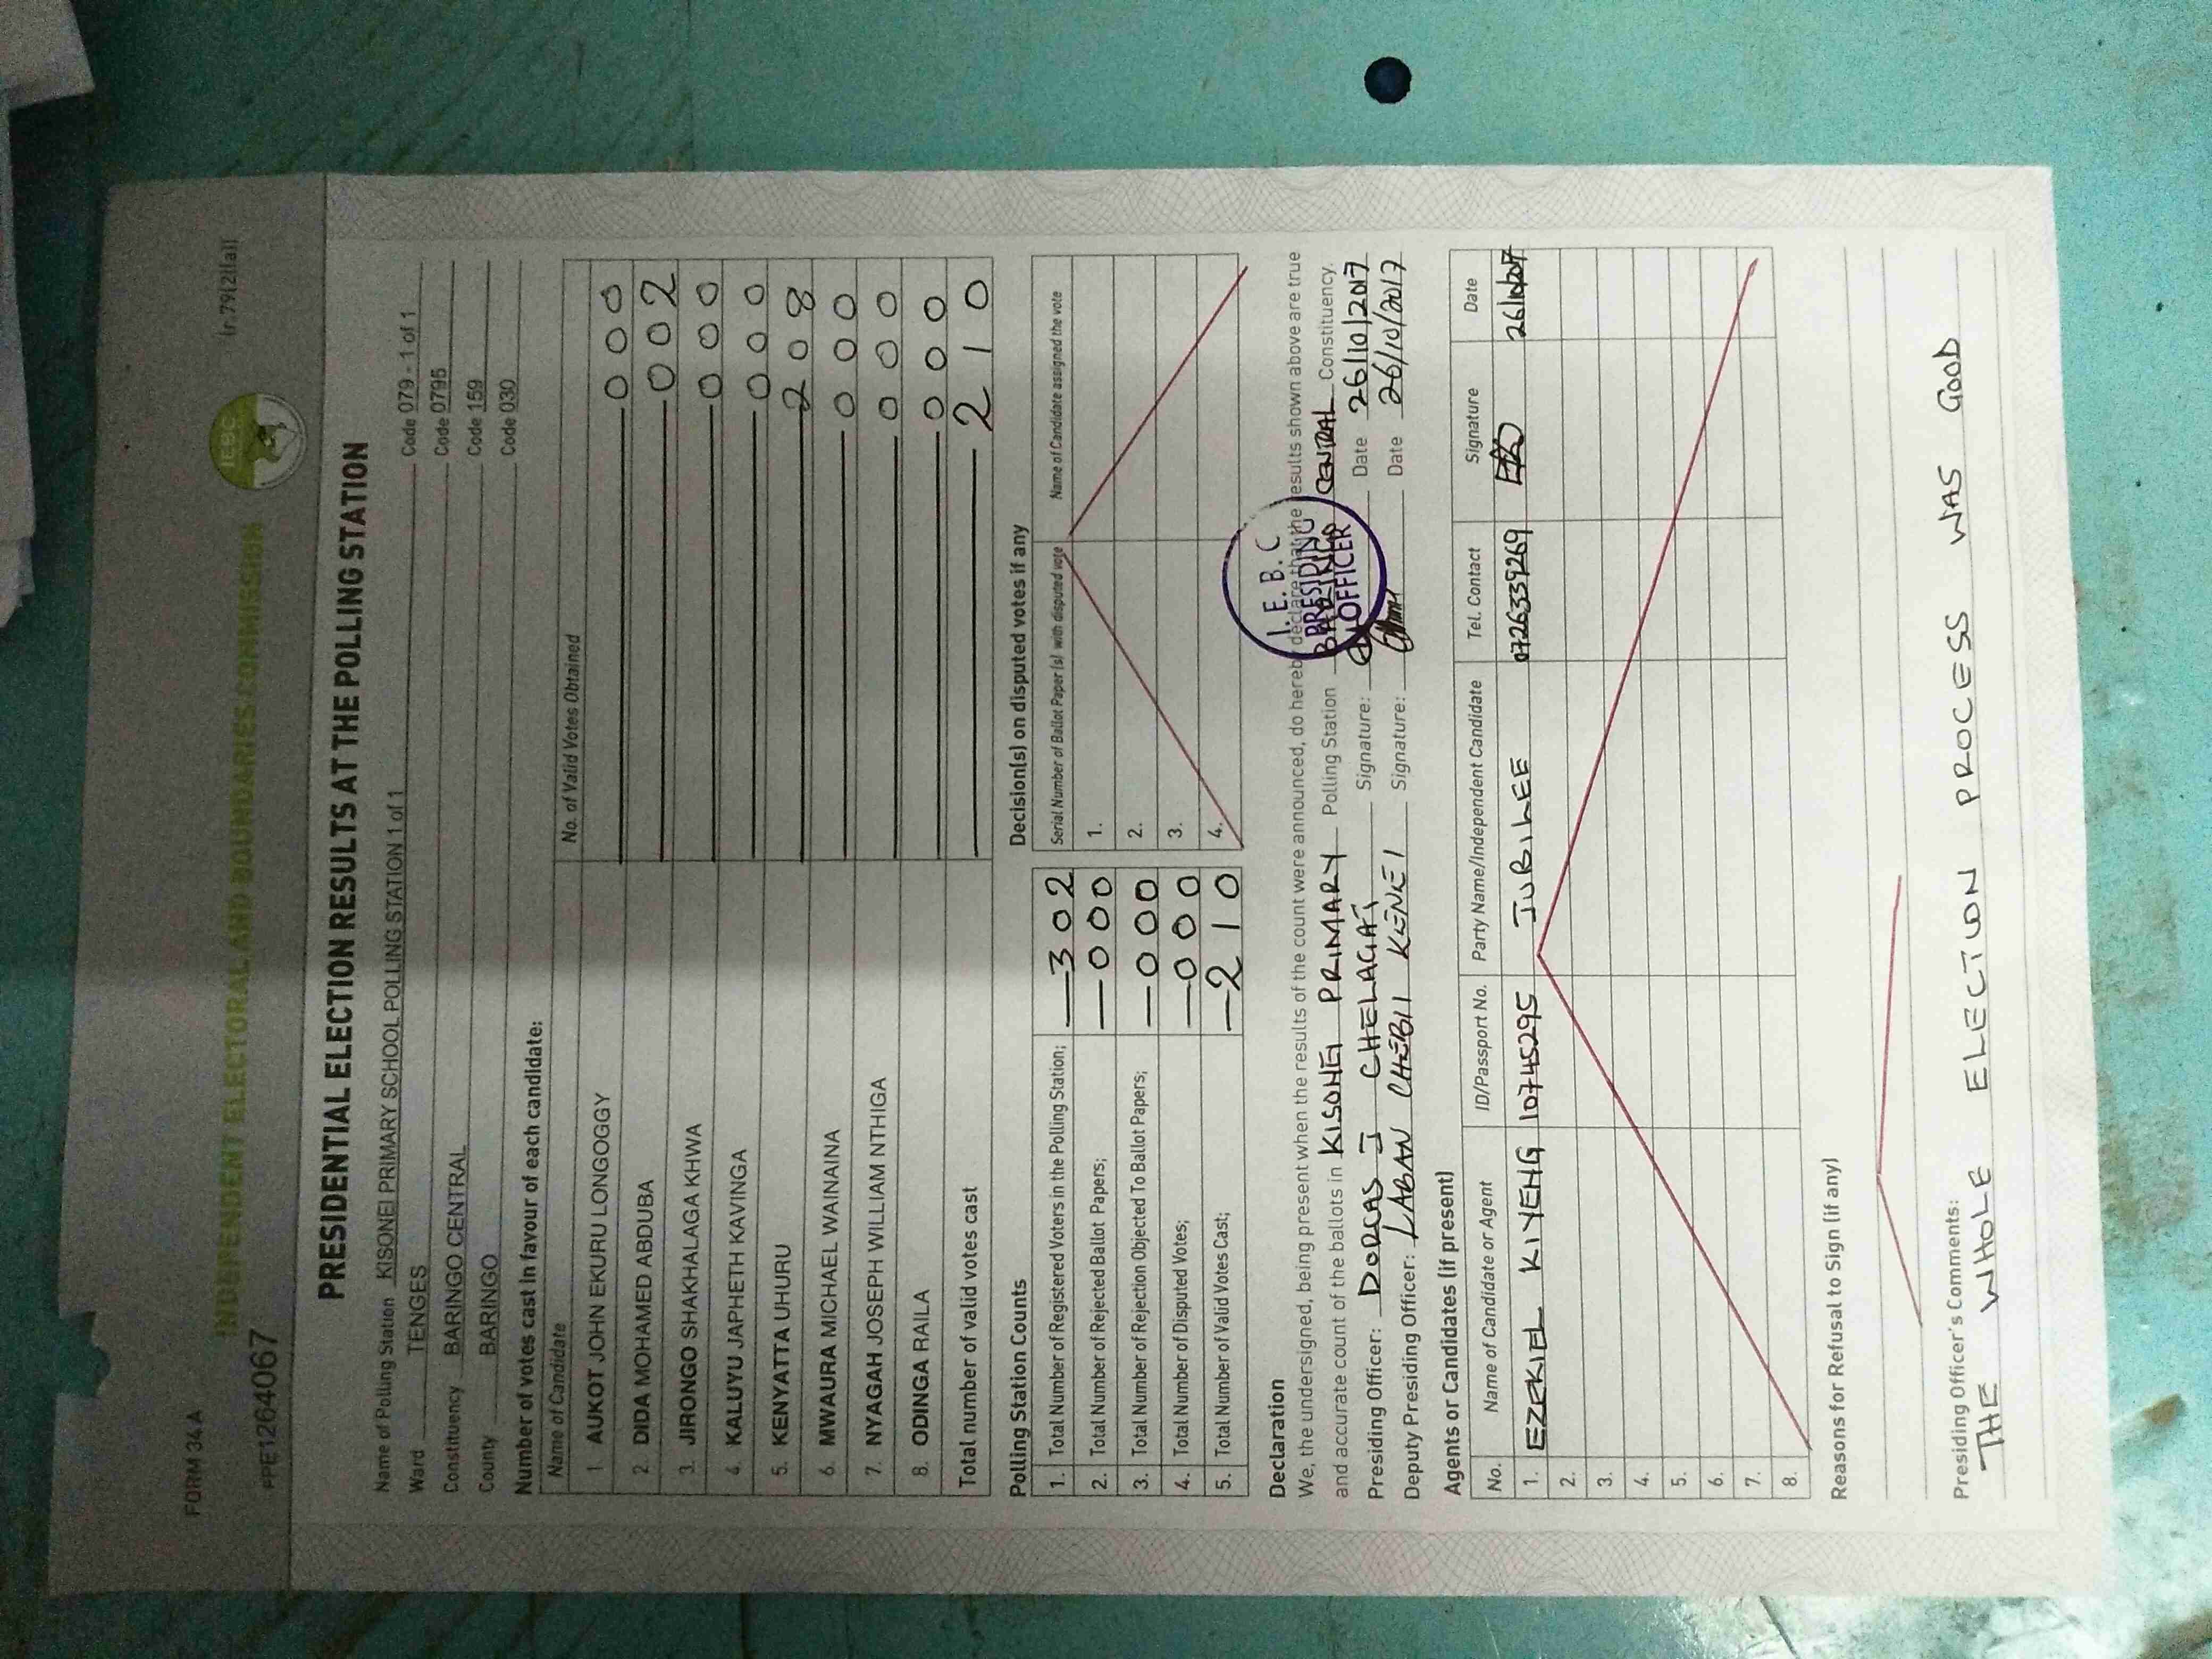 FORM 34A
(r.79(2)(a))
INDEPENDENT ELECTORAL AND BOUNDARIES COMMISSION
IEBC
PPE1264067
PRESIDENTIAL ELECTION RESULTS AT THE POLLING STATION
Name of Polling Station KISONEI PRIMARY SCHOOL POLLING STATION 1 of 1 Code 079 - 1 of 1
Ward TENGES Code 0795
Constituency BARINGO CENTRAL Code 159
County BARINGO Code 030
Number of votes cast in favour of each candidate:
Name of Candidate No. of Valid Votes Obtained
1 AUKOT JOHN EKURU LONGOGGY 000
2. DIDA MOHAMED ABDUBA 002
3. JIRONGO SHAKHALAGA KHWA 000
4. KALUYU JAPHETH KAVINGA 000
5. KENYATTA UHURU 208
6. MWAURA MICHAEL WAINAINA 000
7. NYAGAH JOSEPH WILLIAM NTHIGA 000
8. ODINGA RAILA 000
Total number of valid votes cast 210
Polling Station Counts
1. Total Number of Registered Voters in the Polling Station; 302
2. Total Number of Rejected Ballot Papers; 000
3. Total Number of Rejection Objected To Ballot Papers; 000
4. Total Number of Disputed Votes; 000
5. Total Number of Valid Votes Cast; 210
Decision(s) on disputed votes if any
Serial Number of Ballot Paper (s) with disputed vote Name of Candidate assigned the vote
1.
2.
3.
4.
Declaration
We, the undersigned, being present when the results of the count were announced, do hereby declare that the results shown above are true
and accurate count of the ballots in KISONEI PRIMARY Polling Station BARINGO CENTRAL Constituency.
Presiding Officer: DORCAS J CHELAGAT Signature: Date 26/10/2017
Deputy Presiding Officer: LABAN CHEBII KENEI Signature: Date 26/10/2017
I. E. B. C
PRESIDING
OFFICER
Agents or Candidates (if present)
No. Name of Candidate or Agent ID/Passport No. Party Name/Independent Candidate Tel. Contact Signature Date
1. EZEKIEL KIYENG 10745295 JUBILEE 0726339269 26/10/2017
2.
3.
4.
5.
6.
7.
8.
Reasons for Refusal to Sign (if any)
Presiding Officer's Comments:
THE WHOLE ELECTION PROCESS WAS GOOD